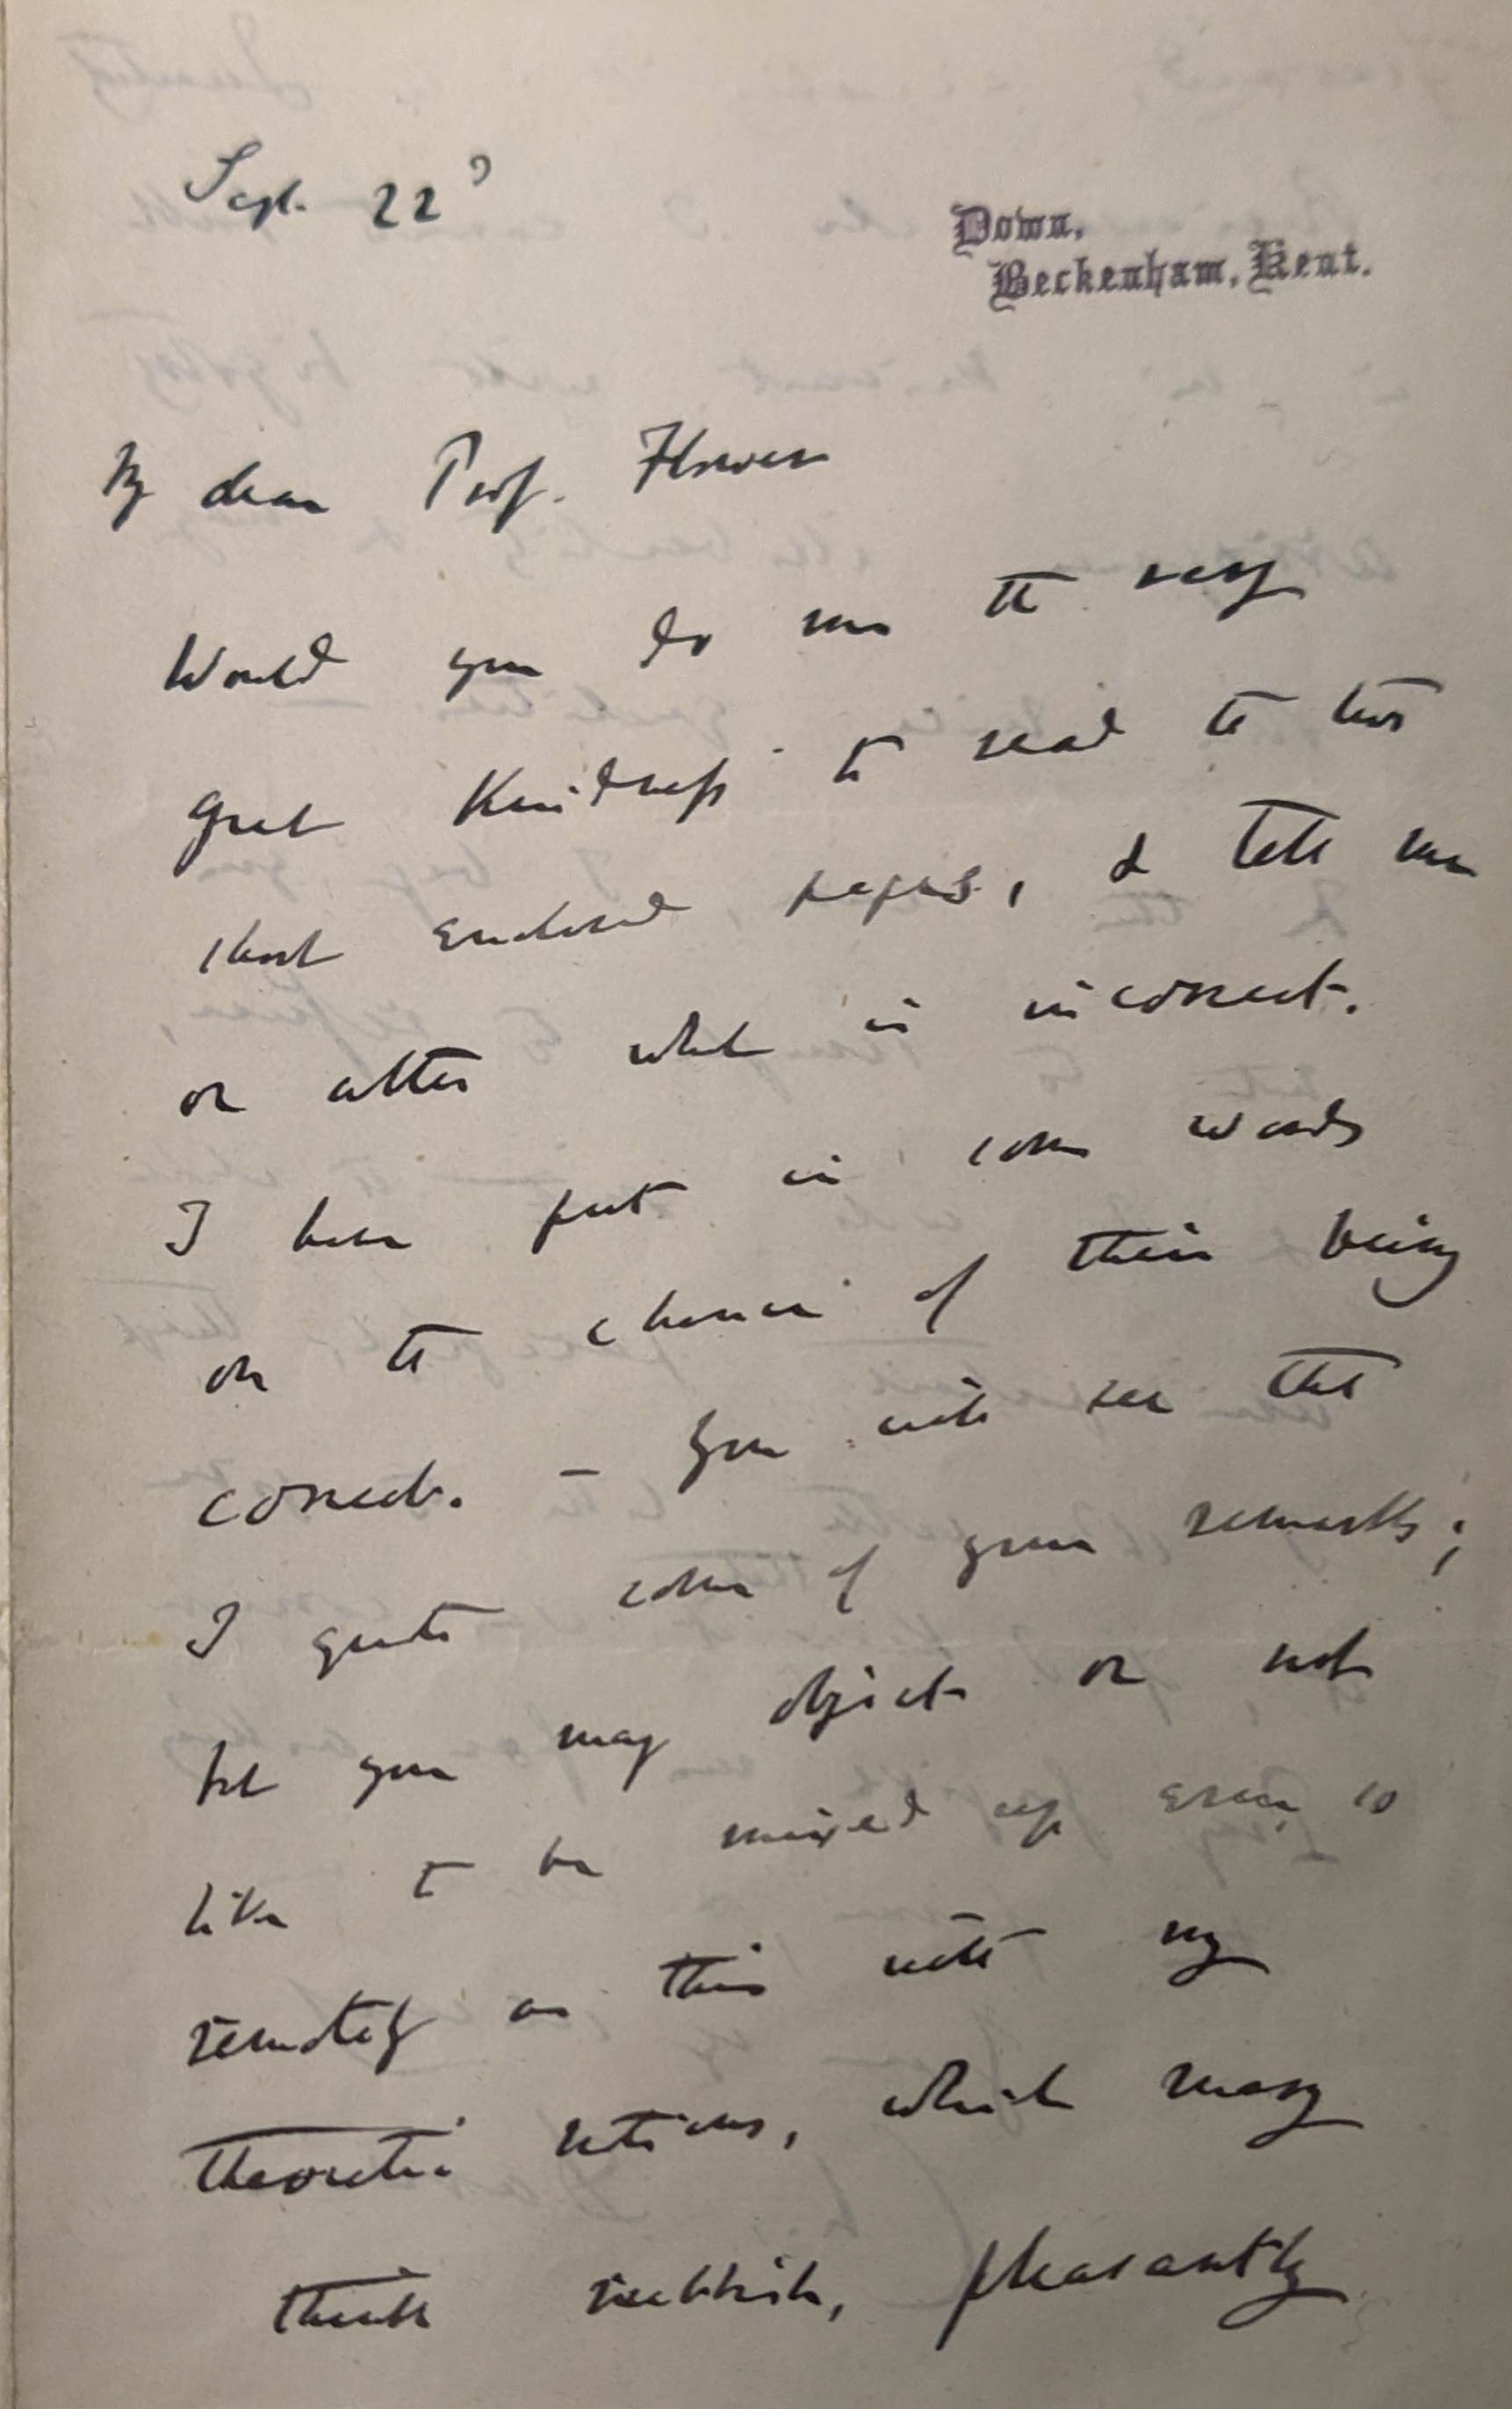 Sept. 22d
Down,
Beckenham, Kent.
My dear Prof. Flower
Would you do me the very
great kindness to read the two
short enclosed pages, & tell me
or alter what is incorrect.
I have put in some words
on the chance of their being
correct. — You will see that
I quote some of your remarks;
but you may object or not
like to be mixed up even so
remotely as this with my
theoretic notions, which many
think rubbish, pleasantly